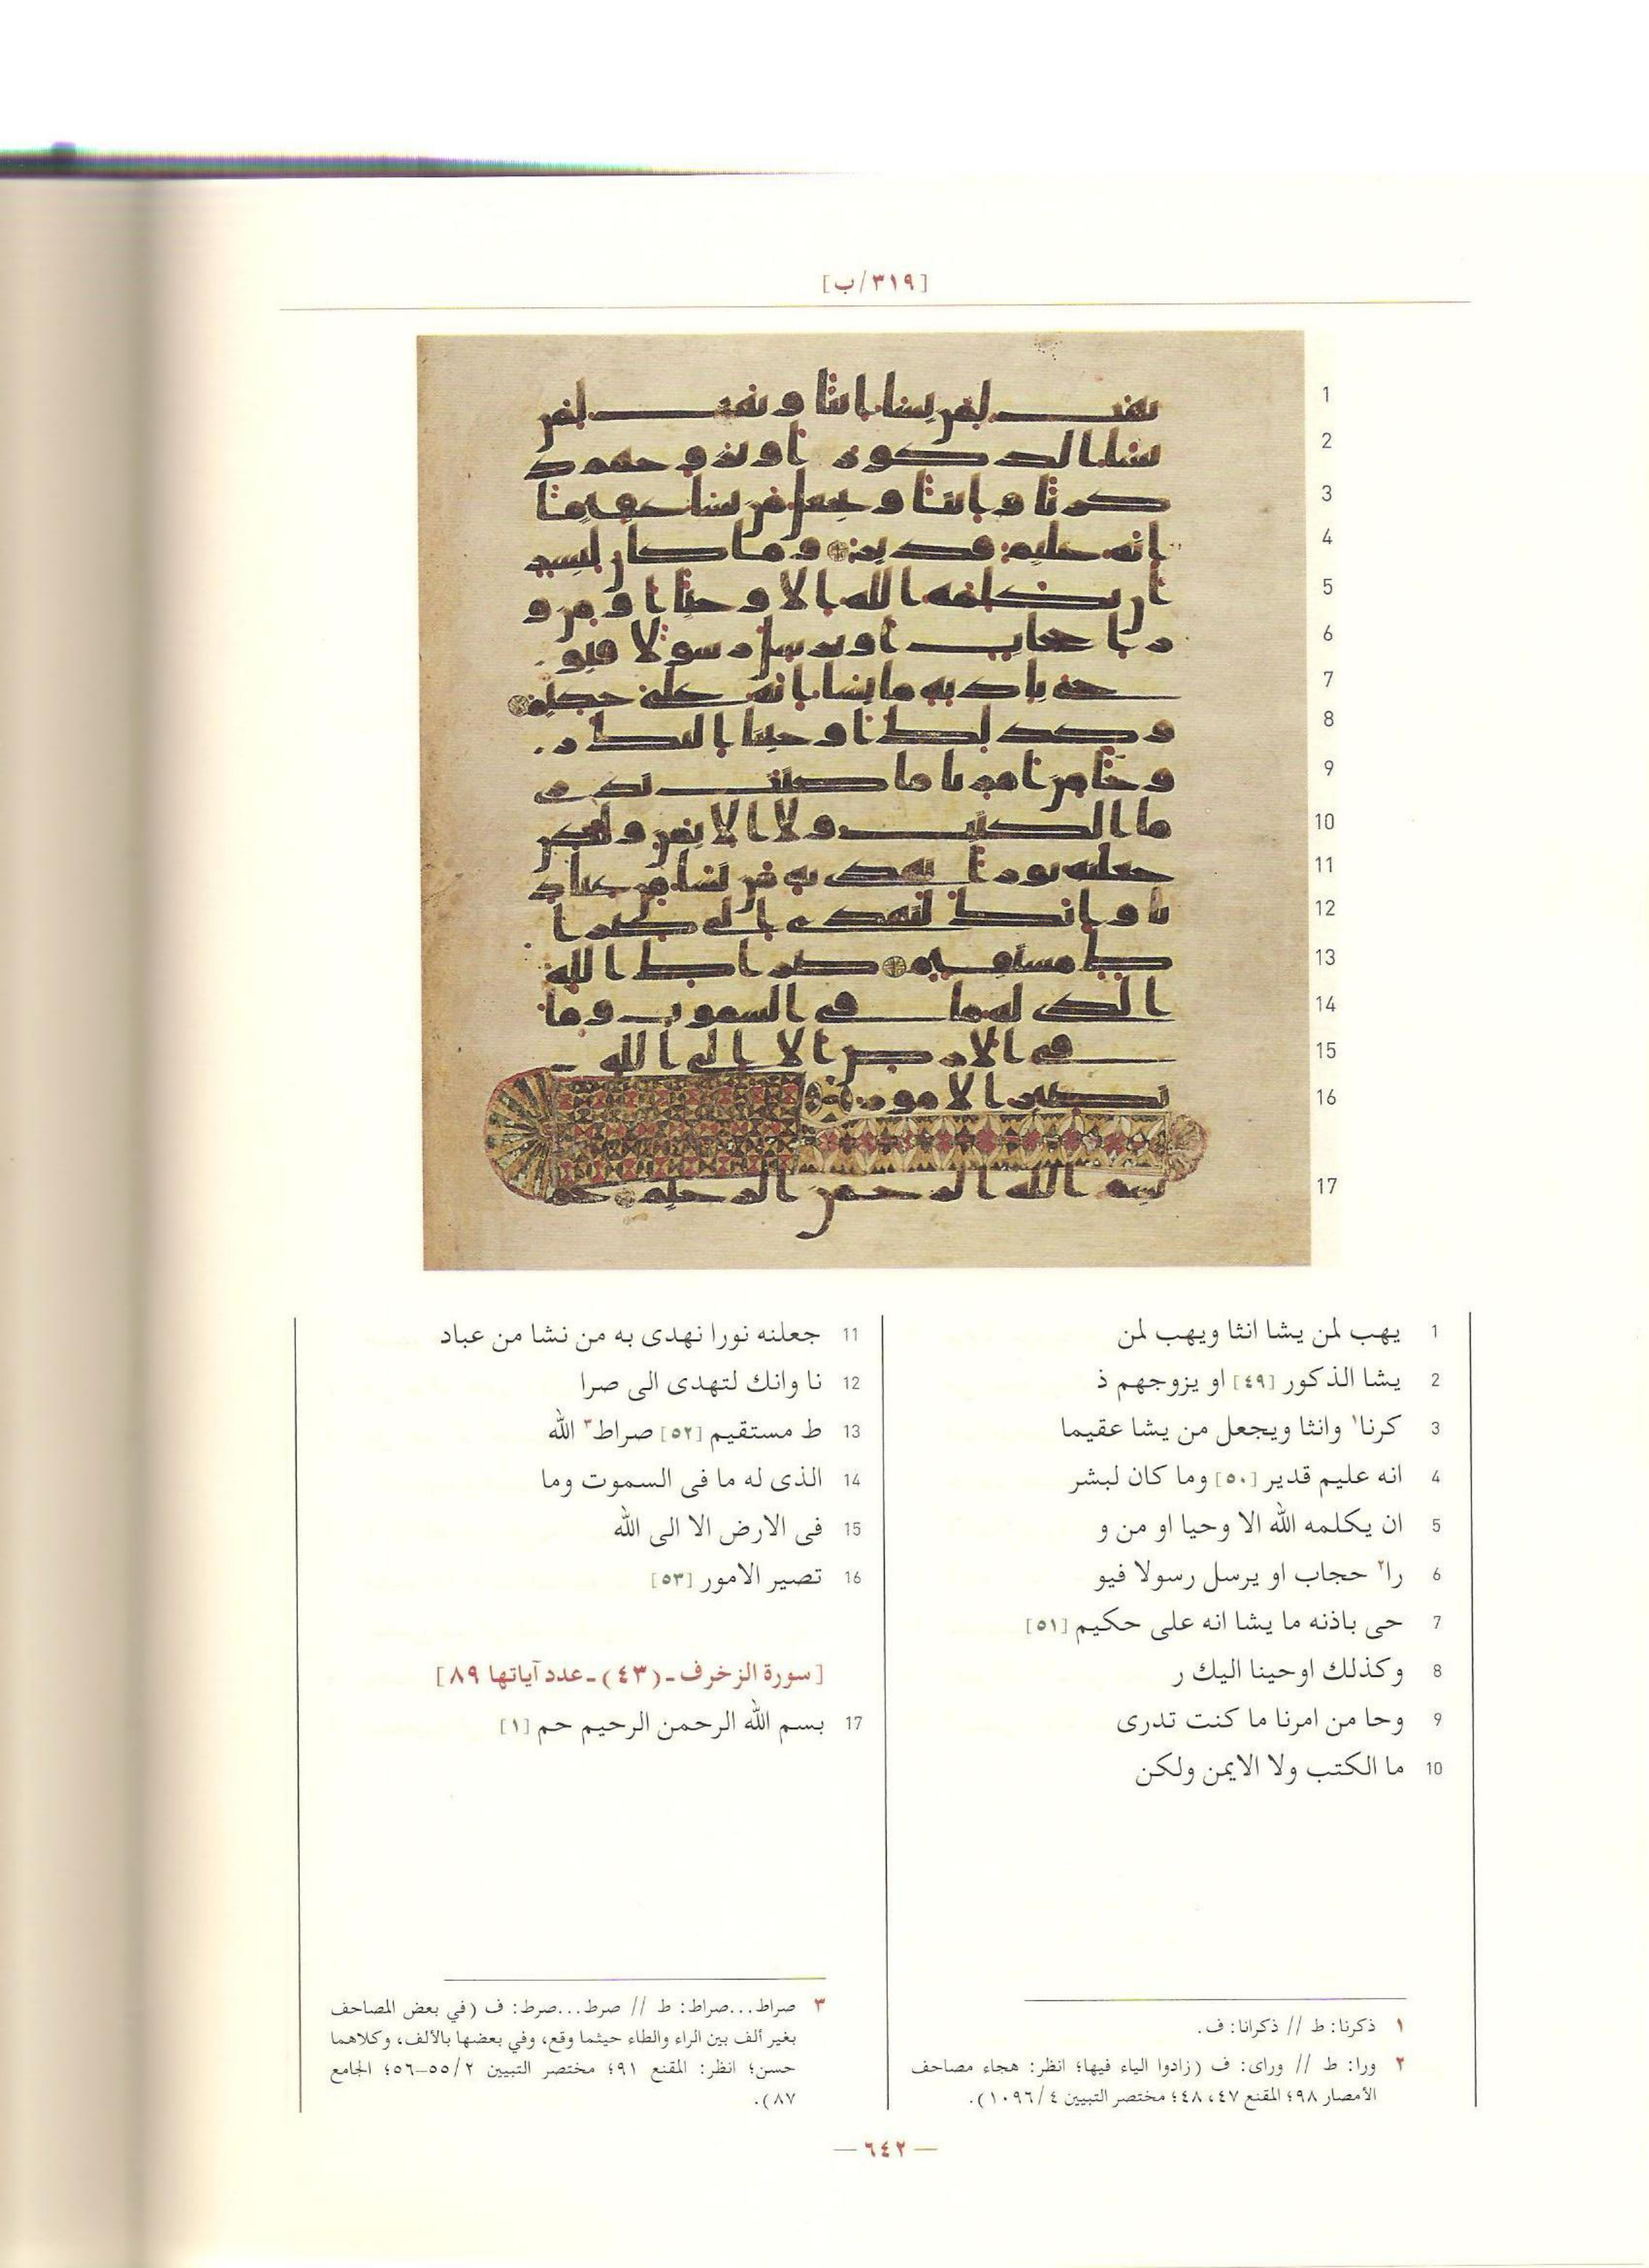 [٣١٩/ب]
1
2
3
4
5
6
7
8
9
10
11
12
13
14
15
16
17
1 يهب لمن يشا انثا ويهب لمن
2 يشا الذكور [٤٩] او يزوجهم ذ
3 كرنا١ وانثا ويجعل من يشا عقيما
4 انه عليم قدير [٥٠] وما كان لبشر
5 ان يكلمه الله الا وحيا او من و
6 را٢ حجاب او يرسل رسولا فيو
7 حى باذنه ما يشا انه على حكيم [٥١]
8 وكذلك اوحينا اليك ر
9 وحا من امرنا ما كنت تدرى
10 ما الكتب ولا الايمن ولكن
11 جعلنه نورا نهدى به من نشا من عباد
12 نا وانك لتهدى الى صرا
13 ط مستقيم [٥٢] صراط٣ الله
14 الذى له ما فى السموت وما
15 فى الارض الا الى الله
16 تصير الامور [٥٣]
[سورة الزخرف ـ (٤٣) ـ عدد آياتها ٨٩]
17 بسم الله الرحمن الرحيم حم [١]
١ ذكرنا: ط // ذكرانا: ف.
٢ ورا: ط // وراى: ف (زادوا الياء فيها؛ انظر: هجاء مصاحف
الأمصار ٩٨؛ المقنع ٤٧، ٤٨؛ مختصر التبيين ٤/١٠٩٦).
٣ صراط...صراط: ط // صرط...صرط: ف (في بعض المصاحف
بغير ألف بين الراء والطاء حيثما وقع، وفي بعضها بالألف، وكلاهما
حسن؛ انظر: المقنع ٩١؛ مختصر التبيين ٢/٥٥–٥٦؛ الجامع
٨٧).
— ٦٤٢ —